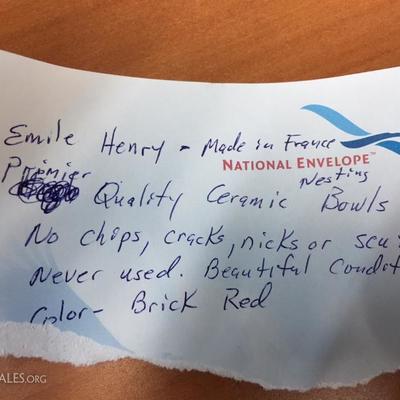 Emile Henry - Made in France
NATIONAL ENVELOPE™
Premier Quality Ceramic Nesting Bowls
No chips, cracks, nicks or
Never used. Beautiful
Color- Brick Red
ALES.ORG